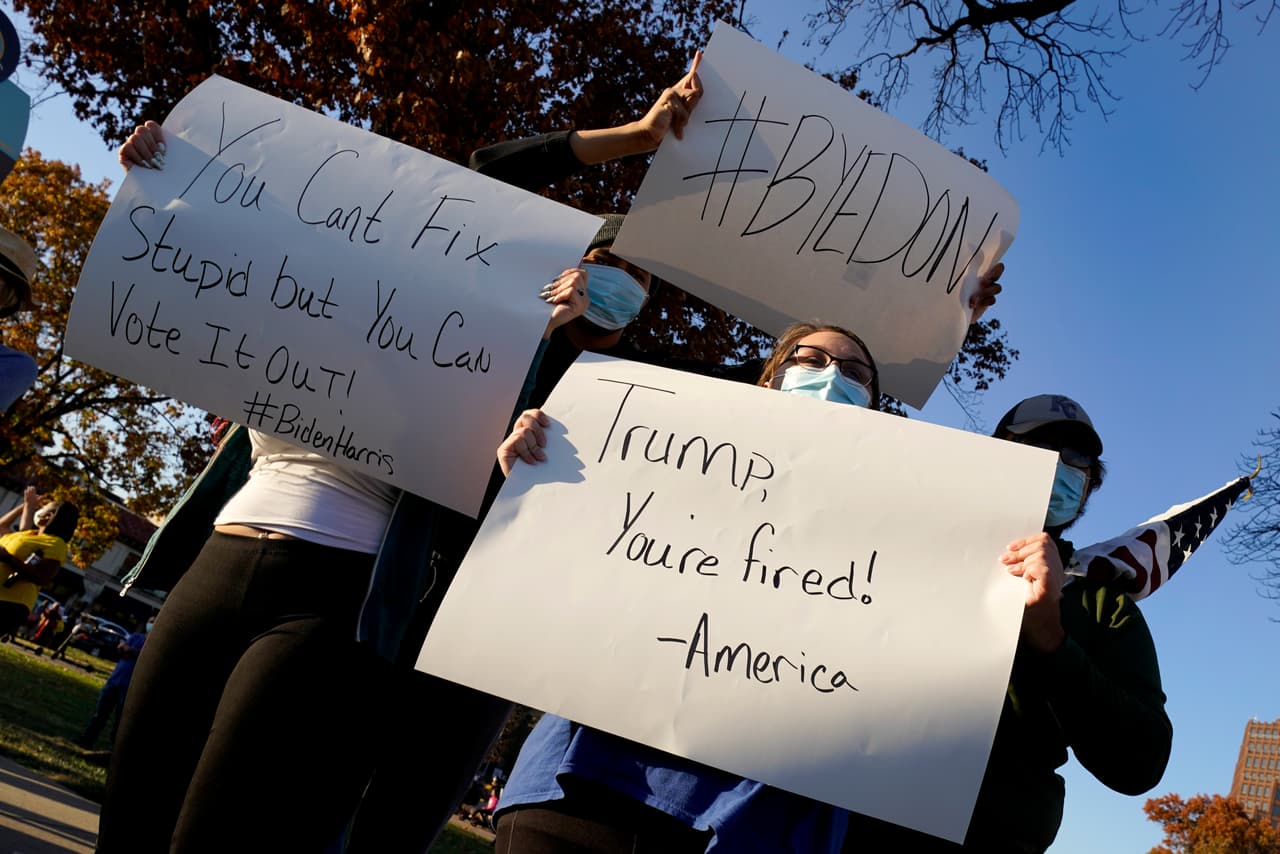 You Cant Fix
Stupid but You Can
Vote It OuT!
#BidenHarris
#BYEDON
Trump,
You're fired!
-America
KC